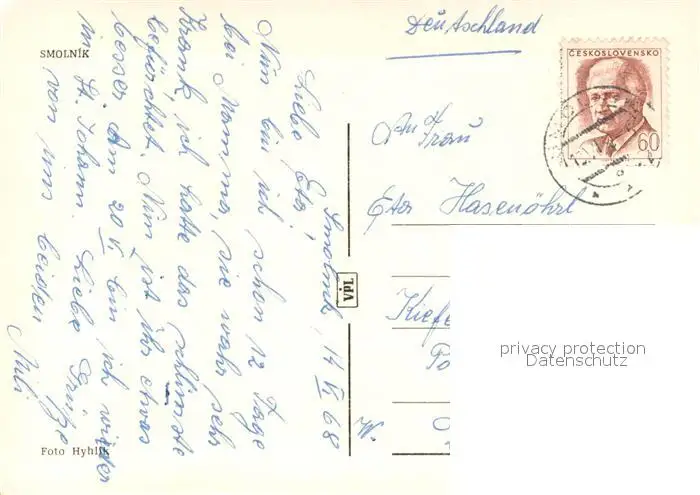 SMOLNÍK
Smolník, 14 VI 68
Liebe Eta,
Nun bin ich schon 12 Tage
bei Mamma, sie wahr sehr
Krank, ich hatte das schlimste
befürchtet. Nun ist ihr etwas
besser. Am 20 VI. bin ich wieder
in St. Johann. Liebe Grüße
von uns beiden
Foto Hyhlík
VPL
Deutschland
ČESKOSLOVENSKO
60
An Frau
Eta Hasenöhrl
Kiefe
Po
W.
privacy protection
Datenschutz